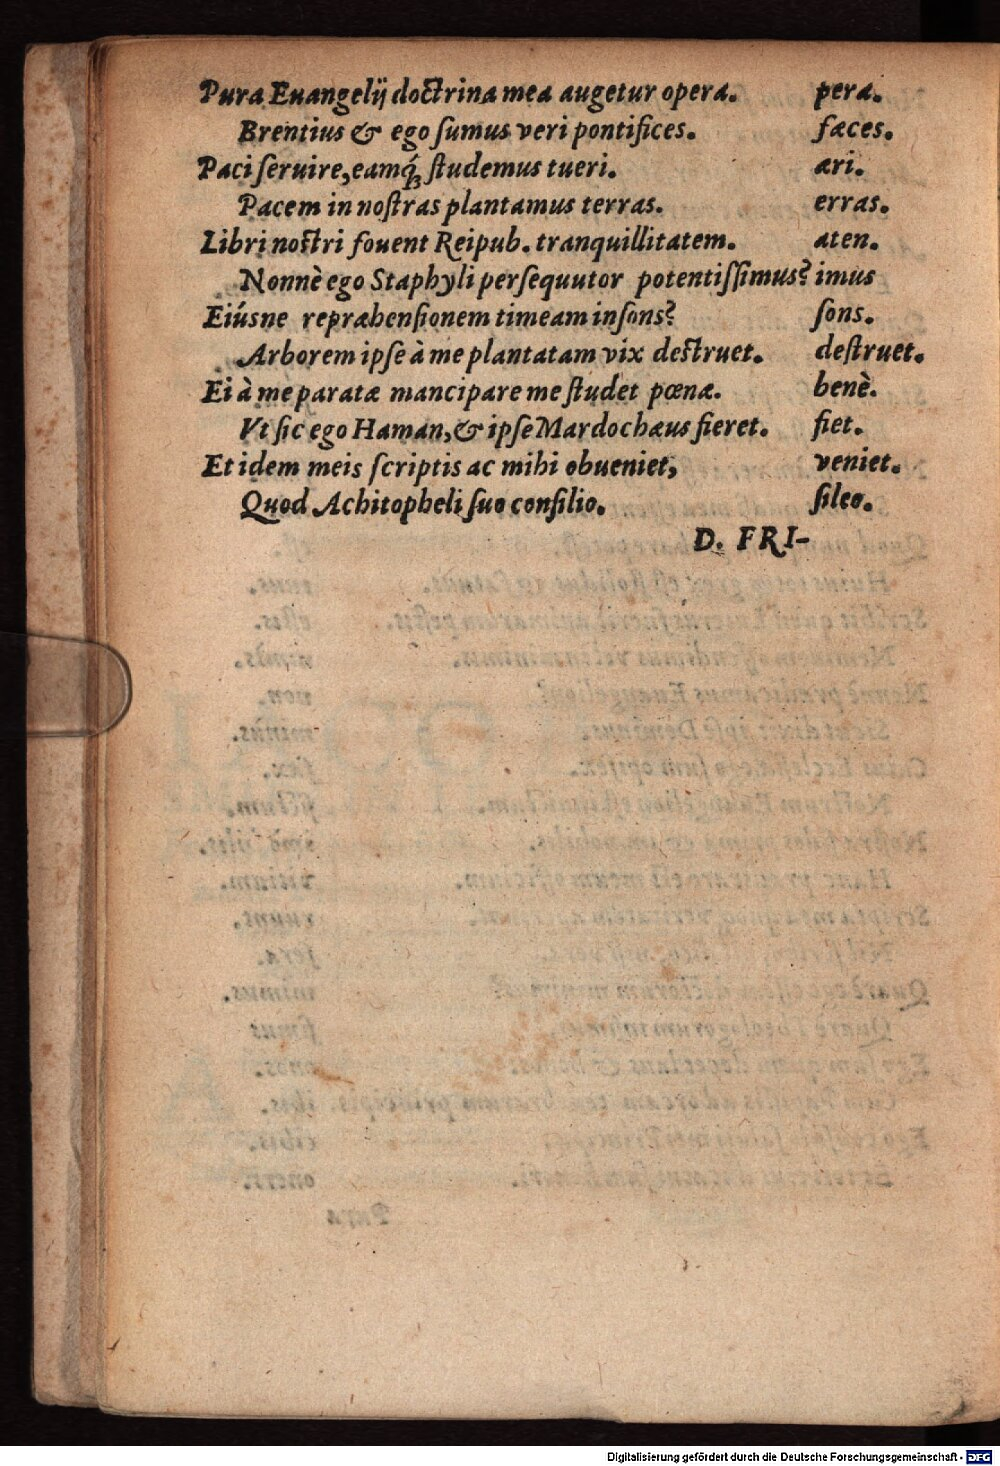 Pura Euangelij doctrina mea augetur opera. pera.
Brentius & ego ſumus veri pontifices. fæces.
Paci ſeruire, eamq́ꝫ ſtudemus tueri. æri.
Pacem in noſtras plantamus terras. erras.
Libri noſtri fouent Reipub. tranquillitatem. aten.
Nonnè ego Staphyli perſequutor potentiſſimus? imus
Eiúsne repræhenſionem timeam inſons? ſons.
Arborem ipſe à me plantatam vix deſtruet. deſtruet.
Ei à me paratæ mancipare me ſtudet pœnæ. benè.
Vt ſic ego Haman, & ipſe Mardochæus fieret. fiet.
Et idem meis ſcriptis ac mihi obueniet, veniet.
Quod Achitopheli ſuo conſilio. ſileo.
D. FRI-
Digitalisierung gefördert durch die Deutsche Forschungsgemeinschaft - DFG